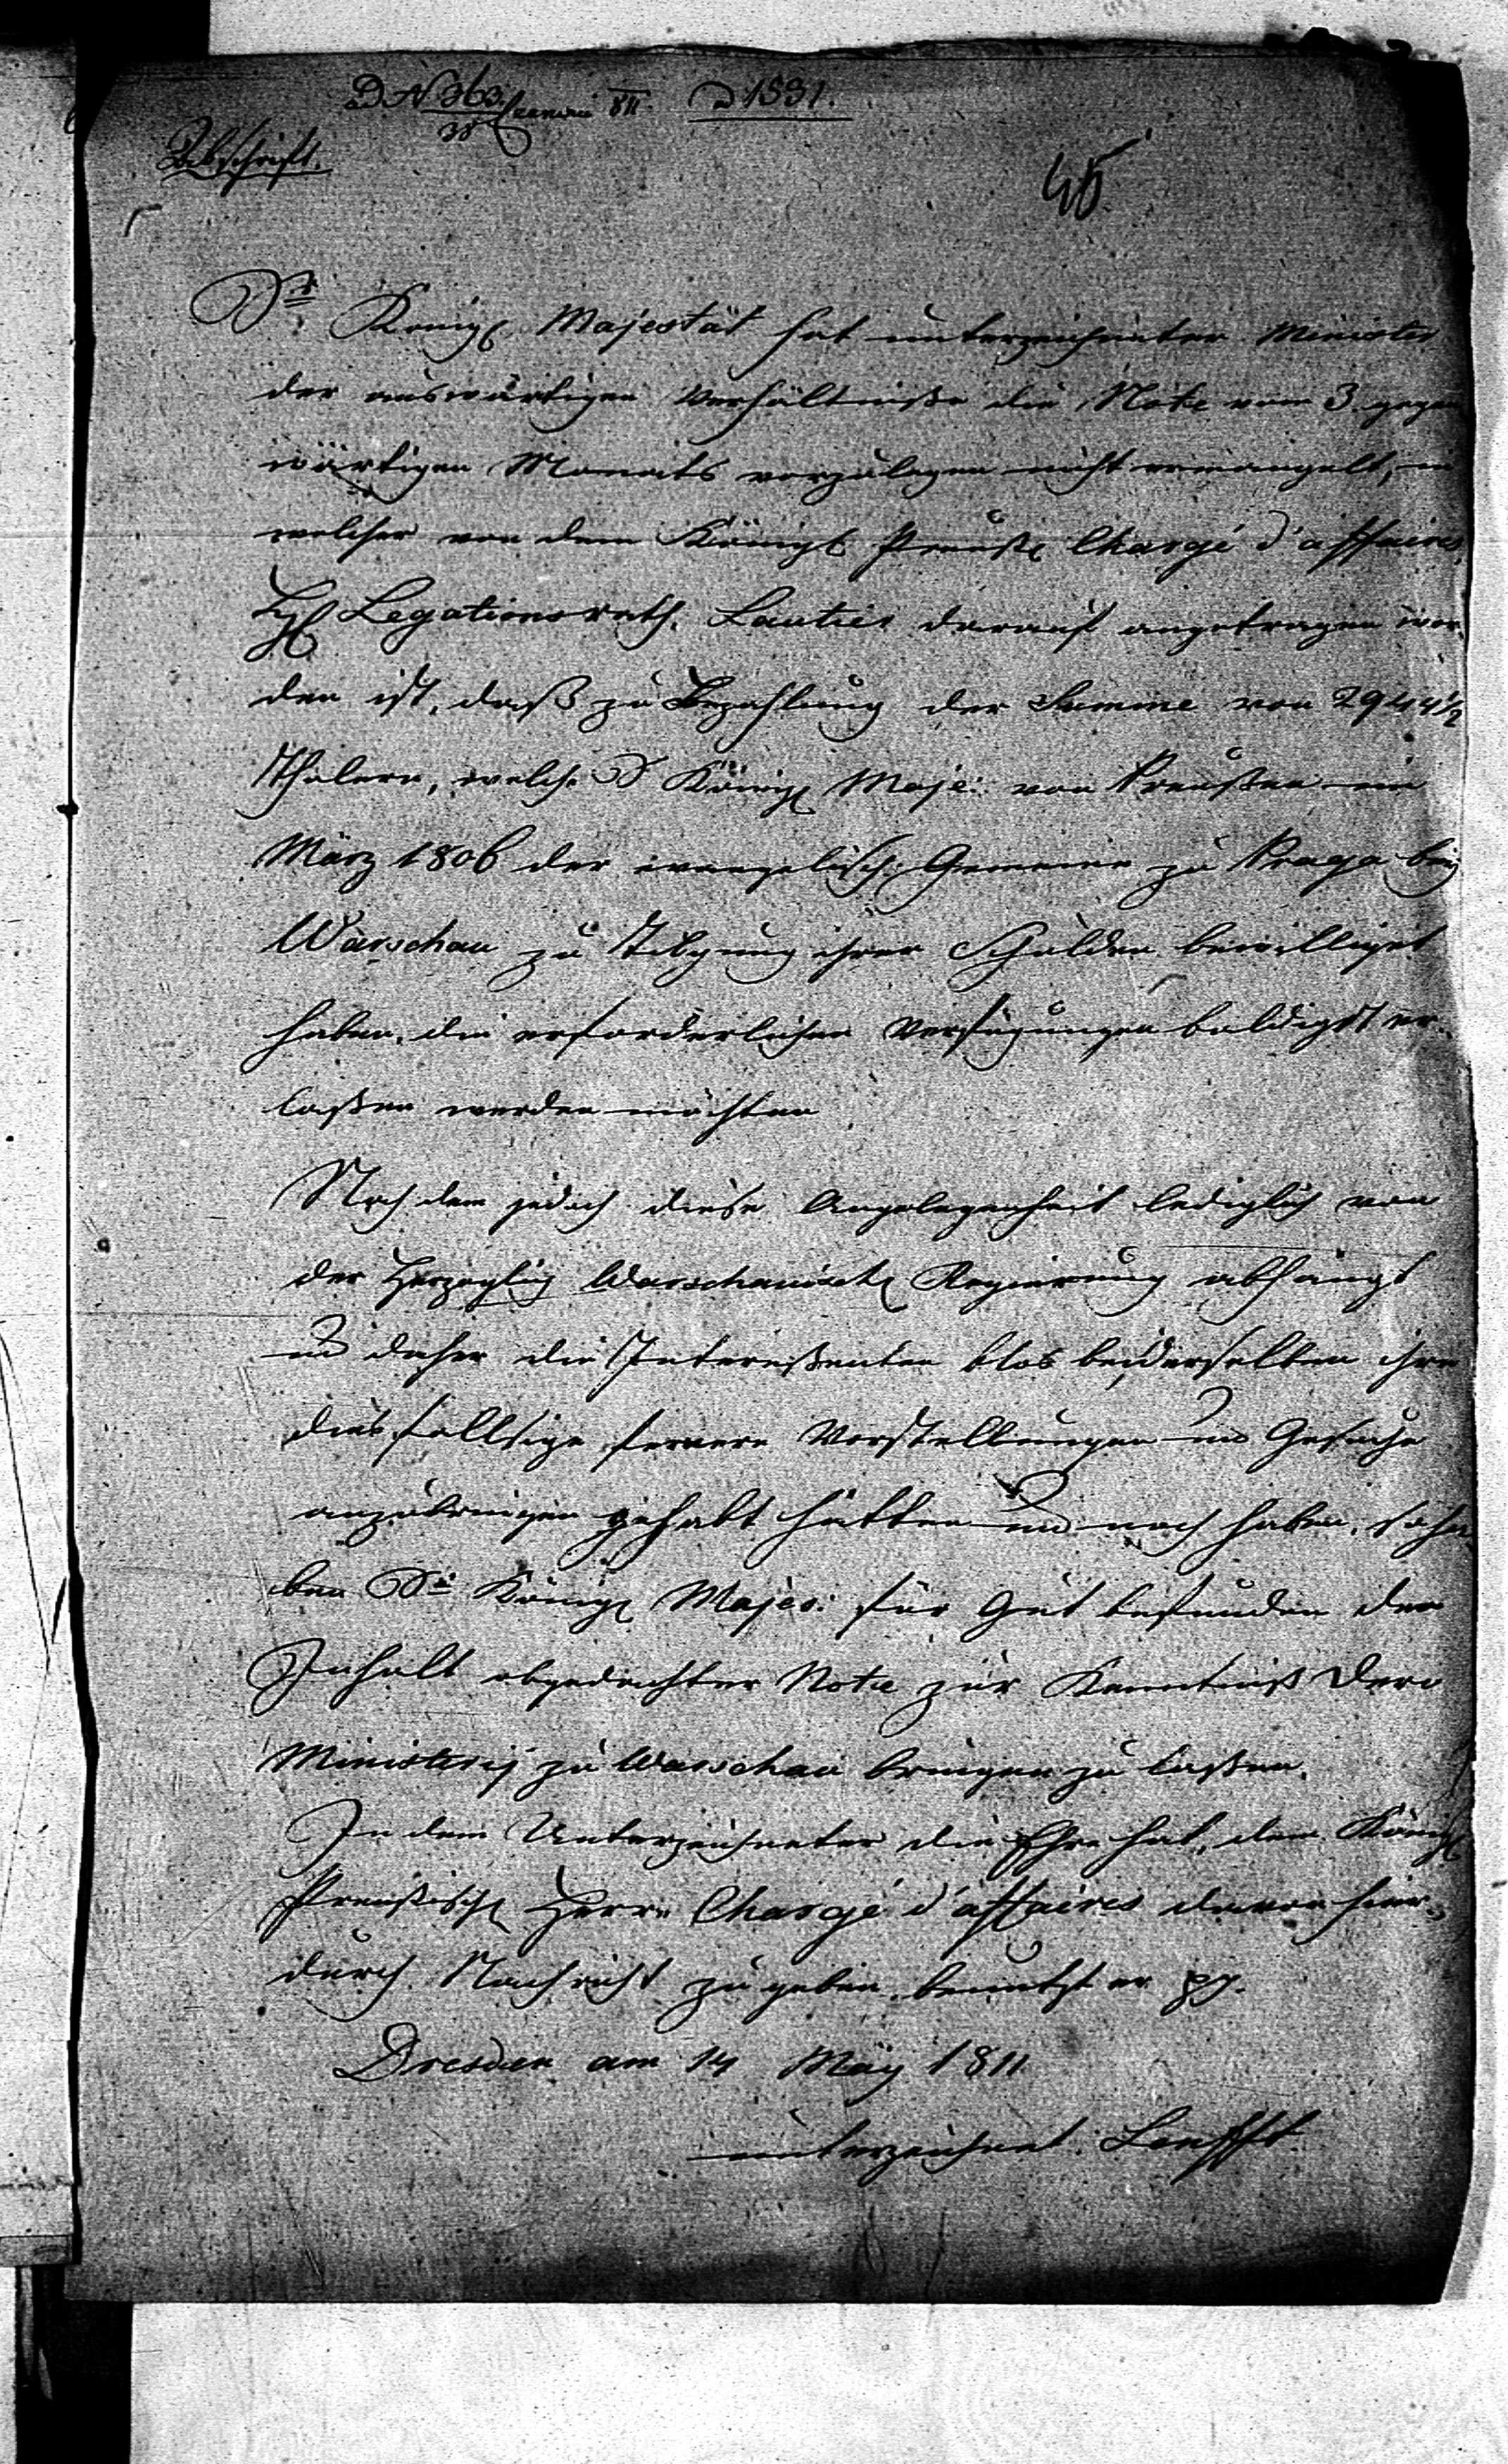 D N 363. 811. d 1831.
38
Abschrift.
45
Sr. Königl Majestät hat unterzeichneter Minister
der auswärtigen Verhältniße die Note vom 3. gegen
wärtigen Monats vorzulegen nicht ermangelt, in
welcher von dem Königl Preuß Chargé d'affaires
H Legationsrath Lautier darauf angetragen wor-
den ist, daß zu Bezahlung der Summe von 2944½
Thalern, welche S Königl Maje: von Preußen im
März 1806 der evangelisch: Gemeine zu Praga bey
Warschau zu Tilgung ihrer Schulden bewilliget
haben, die erforderlichen Verfügungen baldigst er-
laßen werden möchten
Nach dem jedoch diese Angelegenheit lediglich von
der Herzoglich Warschauisch Regierung abhängt
und daher die Intereßenten blos bei derselben ihre
diesfallsige fernere Vorstellungen und Gesuche
anzubringen gehabt hätten und noch haben, so ha
ben Se Königl Majes: für Gut befunden den
Inhalt obgedachter Note zur Kenntniß Dero
Ministerij zu Warschau bringen zu laßen.
In dem Unterzeichneter die Ehre hat, dem Königl
Preußisch Herrn Chargé d'affaires davon hier-
durch Nachricht zu geben, benutzt er pp.
Dresden am 14 May 1811
unterzeichnet: Senfft